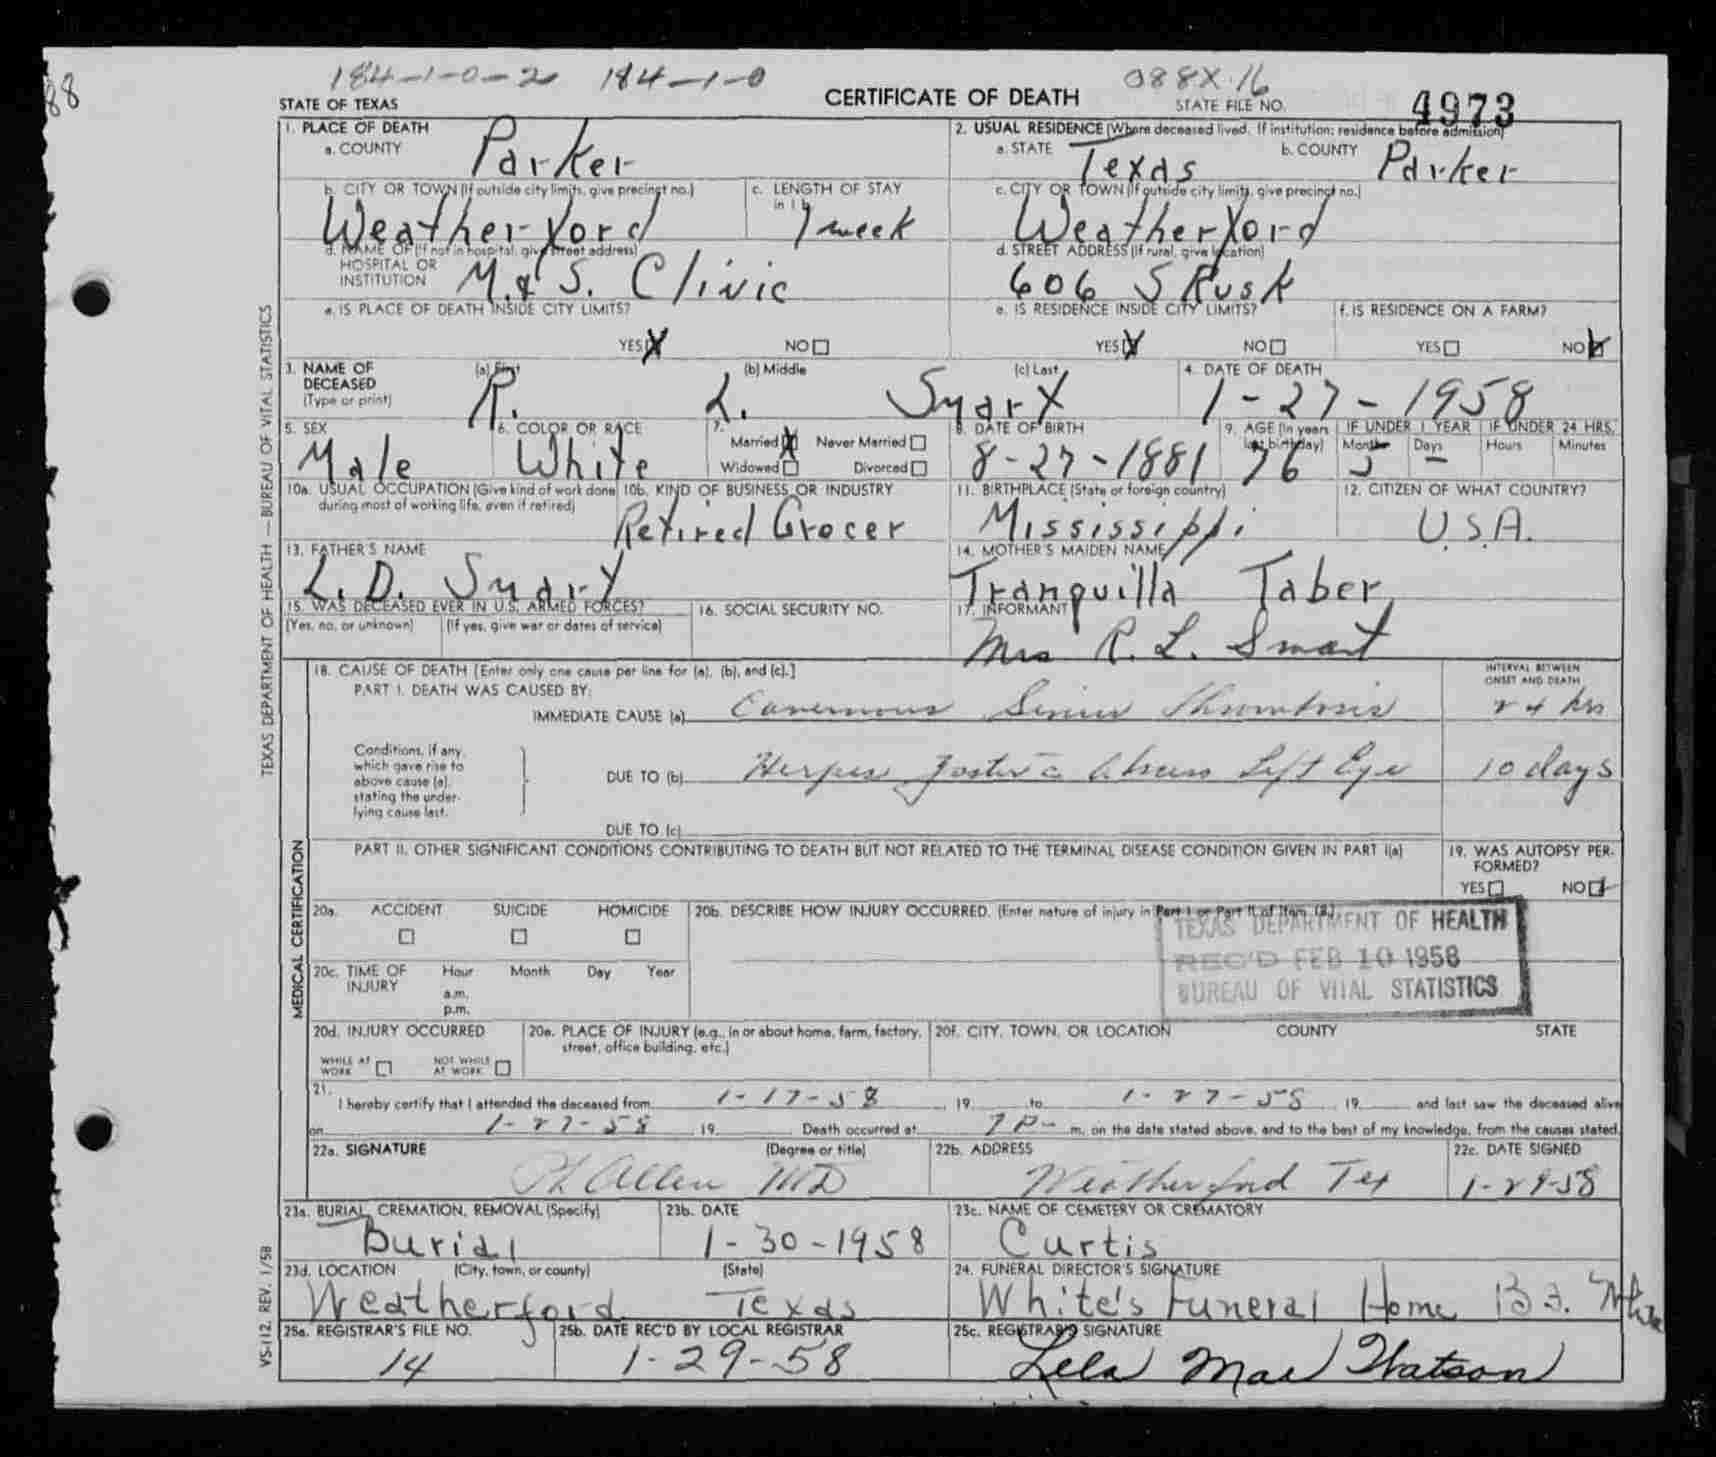 88
184-1-0-2 184-1-0 088X.16
STATE OF TEXAS CERTIFICATE OF DEATH STATE FILE NO. 4973
1. PLACE OF DEATH
a. COUNTY Parker
2. USUAL RESIDENCE (Where deceased lived. If institution: residence before admission)
a. STATE Texas b. COUNTY Parker
b. CITY OR TOWN (If outside city limits, give precinct no.) Weatherford
c. LENGTH OF STAY in 1 b 1 week
c. CITY OR TOWN (If outside city limits, give precinct no.) Weatherford
d. NAME OF (If not in hospital, give street address)
HOSPITAL OR
INSTITUTION M. & S. Clinic
d. STREET ADDRESS (If rural, give location)
606 S Rusk
e. IS PLACE OF DEATH INSIDE CITY LIMITS?
YES X NO
e. IS RESIDENCE INSIDE CITY LIMITS?
YES X NO
f. IS RESIDENCE ON A FARM?
YES NO X
3. NAME OF DECEASED (Type or print)
(a) First (b) Middle (c) Last
R. L. Smart
4. DATE OF DEATH
1-27-1958
5. SEX
Male
6. COLOR OR RACE
White
7. Married X Never Married
Widowed Divorced
8. DATE OF BIRTH
8-27-1881
9. AGE (In years last birthday) 76
IF UNDER 1 YEAR IF UNDER 24 HRS.
Months 5 Days - Hours Minutes
10a. USUAL OCCUPATION (Give kind of work done
during most of working life, even if retired)
10b. KIND OF BUSINESS OR INDUSTRY
Retired Grocer
11. BIRTHPLACE (State or foreign country)
Mississippi
12. CITIZEN OF WHAT COUNTRY?
U.S.A.
13. FATHER'S NAME
L. D. Smart
14. MOTHER'S MAIDEN NAME
Tranquilla Taber
15. WAS DECEASED EVER IN U.S. ARMED FORCES?
(Yes, no, or unknown) (If yes, give war or dates of service)
16. SOCIAL SECURITY NO.
17. INFORMANT
Mrs R. L. Smart
18. CAUSE OF DEATH [Enter only one cause per line for (a), (b), and (c).]
PART I. DEATH WAS CAUSED BY:
INTERVAL BETWEEN
ONSET AND DEATH
IMMEDIATE CAUSE (a) Cavernous Sinus Thrombosis 24 hrs
Conditions, if any,
which gave rise to
above cause (a),
stating the under-
lying cause last.
DUE TO (b) Herpes Zoster c Abscess Left Eye 10 days
DUE TO (c)
PART II. OTHER SIGNIFICANT CONDITIONS CONTRIBUTING TO DEATH BUT NOT RELATED TO THE TERMINAL DISEASE CONDITION GIVEN IN PART I(a)
19. WAS AUTOPSY PER-
FORMED?
YES NO
20a. ACCIDENT SUICIDE HOMICIDE
20b. DESCRIBE HOW INJURY OCCURRED. (Enter nature of injury in Part I or Part II of Item 18.)
TEXAS DEPARTMENT OF HEALTH
REC'D FEB 10 1958
BUREAU OF VITAL STATISTICS
20c. TIME OF INJURY Hour Month Day Year
a.m.
p.m.
20d. INJURY OCCURRED
WHILE AT WORK NOT WHILE AT WORK
20e. PLACE OF INJURY (e.g., in or about home, farm, factory,
street, office building, etc.)
20f. CITY, TOWN, OR LOCATION COUNTY STATE
21.
I hereby certify that I attended the deceased from 1-17-58, 19 to 1-27-58, 19 and last saw the deceased alive
on 1-27-58, 19 Death occurred at 7 P- m. on the date stated above, and to the best of my knowledge, from the causes stated.
22a. SIGNATURE (Degree or title)
Allen MD
22b. ADDRESS
Weatherford Tex
22c. DATE SIGNED
1-29-58
23a. BURIAL, CREMATION, REMOVAL (Specify)
Burial
23b. DATE
1-30-1958
23c. NAME OF CEMETERY OR CREMATORY
Curtis
23d. LOCATION (City, town, or county) (State)
Weatherford Texas
24. FUNERAL DIRECTOR'S SIGNATURE
White's Funeral Home
25a. REGISTRAR'S FILE NO.
14
25b. DATE REC'D BY LOCAL REGISTRAR
1-29-58
25c. REGISTRAR'S SIGNATURE
Lela Mae Watson
TEXAS DEPARTMENT OF HEALTH — BUREAU OF VITAL STATISTICS
MEDICAL CERTIFICATION
VS-112, REV. 1/58